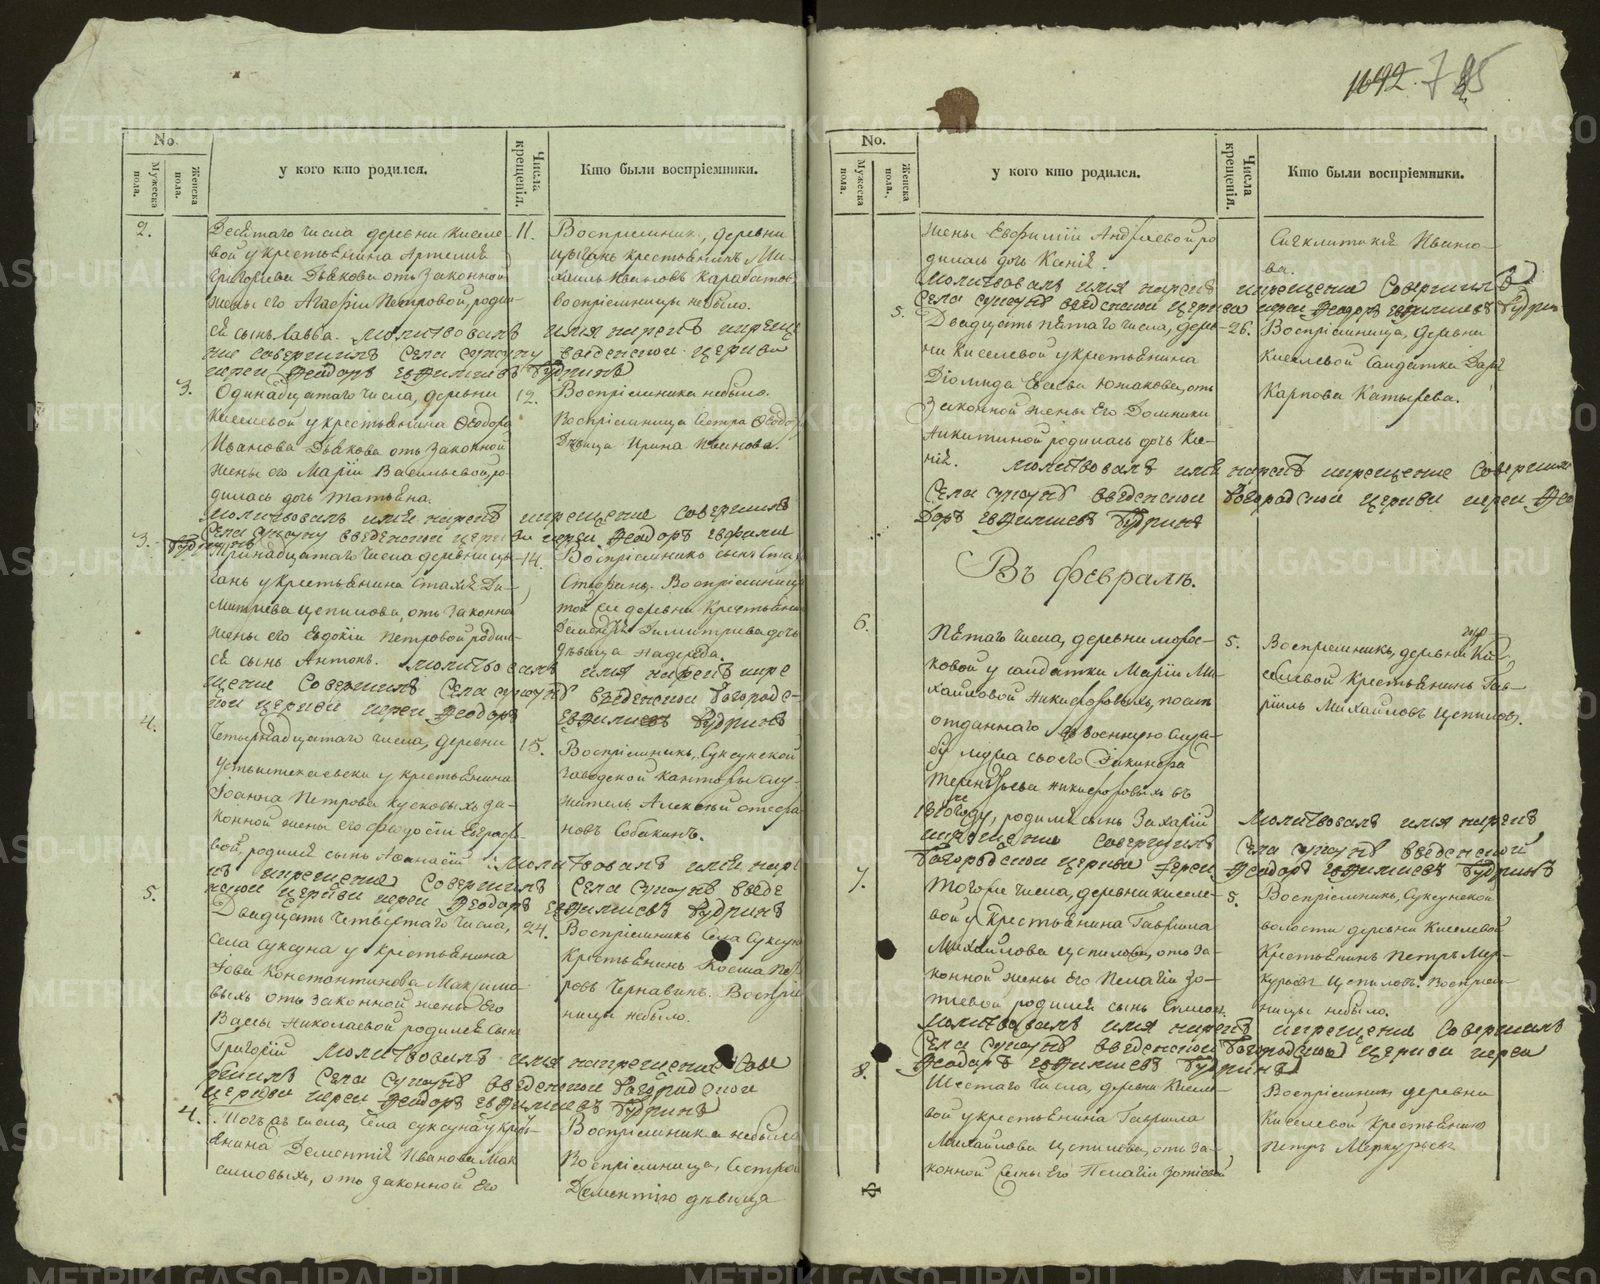 1692. 785
No.
Мужеска пола.
Женска пола.
у кого кто родился.
Числа крещенія.
Кто были воспріемники.
2.
Десятаго числа деревни Киселе-
вой у крестьянина Артемія
Григорьева Дьякова отъ законной
жены его Агафіи Петровой, родил-
ся сынъ Савва. Молитвовалъ имя нарекъ и креще
ніе совершилъ села Суксуну Введенской церкви
іерей Феодоръ Евфимиевъ Будринъ
11.
Воспріемникъ, деревни
Цыганъ крестьянинъ Ми-
хаилъ Ивановъ
воспріемницы небыло.
3.
Одинадцатаго числа, деревни
Киселевой у крестьянина Ѳеодора
Иванова Дьякова отъ законной
жены его Маріи Васильевой ро-
дилась дочь Татьяна.
Молитвовалъ имя нарекъ и крещение совершилъ
Села Суксуну Введенской церкви иерей Феодоръ Евфимие
Будринъ
12.
Воспріемника небыло.
Воспріемница Сестра Ѳеодора
Дѣвица Ирина Иванова.
3.
Тринадцатаго числа деревни Цы-
ганъ у крестьянина
Дмитриева Цепилова, отъ законной
жены его Евдокіи Петровой родил-
ся сынъ Антонъ. Молитвовалъ имя нарекъ и кре
щение совершилъ Села Суксунъ Введенской Богородс-
кой церкви иерей Феодоръ Евфимиевъ Будринъ
14.
Воспріемникъ сынъ
Стефанъ. Воспріемница
той же деревни Крестьянина
Димитриева дочь
дѣвица Надежда.
4.
Четырнадцатаго числа, деревни
у крестьянина
Іоанна Петрова Кусковыхъ за-
конной жены его Феодосіи Евграфо-
вой, родился сынъ Афанасій. Молитвовалъ имя наре
къ и крещение совершилъ Села Суксунъ Введе
нской церкви иерей Феодоръ Евфимиевъ Будринъ
15.
Воспріемникъ, Суксунской
заводской Канторы слу-
житель Алексей Стефа-
новъ Собакинъ.
5.
Двадцать четвертаго числа,
села Суксуна у крестьянина
Іова Константинова Максимо-
выхъ отъ законной жены его
Вассы Николаевой родился сынъ
Григорій Молитвовалъ имя нарекъ крещение сове
ршилъ Села Суксунъ Введенской Богородской
церкви иерей Феодоръ Евфимиевъ Будринъ
24.
Воспріемникъ Села Суксуна
Крестьянинъ Косма Пет-
ровъ Чернавинъ. Воспріем-
ницы небыло.
4.
Тогожъ числа, Села Суксуна у крест-
янина Дементія Иванова Мак-
симовыхъ, отъ законной его
Воспріемника небыло
Воспріемница, Сестра
Дементію дѣвица
No.
Мужеска пола.
Женска пола.
у кого кто родился.
Числа крещенія.
Кто были воспріемники.
жены Евфиміи Андреевой ро
дилась дочь Ксенія.
Молитвовалъ имя нарекъ и крещение совершилъ
Села Суксунъ Введенской церкви иерей Феодоръ Евфимиевъ Будрин
Сигклитикія Ивано-
ва.
5.
Двадцать пятаго числа, дерев-
ни Киселевой у крестьянина
Діомида Евсеева Южакова, отъ
Законной жены Его Домники
Никитиной родилась дочь Ксе-
нія. Молитвовалъ имя нарекъ и крещение совершилъ
Села Суксунъ Введенской Богородской церкви иерей Фео
доръ Евфимиевъ Будринъ
26.
Воспріемница, деревни
Киселевой Солдатка Дарья
Карпова Катырева.
Въ февралѣ.
6.
Пятаго числа, деревни Морос-
ковой у солдатки Маріи Ми-
хайловой Никифоровыхъ, посля
отданнаго въ военную служ-
бу мужа своего Никанора
Терентьева Никифоровыхъ въ
году, родился сынъ Захарій Молитвовалъ имя нарекъ
и крещение совершилъ Села Суксунъ Введенской
Богородской церкви Іерей Феодоръ Евфимиевъ Будринъ
5.
Воспріемникъ, деревни Ки-
селевой Крестьянинъ Гав-
ріилъ Михайловъ Цепиловъ.
7.
Тогоже числа, деревни Киселе-
вой у крестьянина Гавриила
Михайлова Цепилова, отъ за-
конной жены его Пелагіи Зо-
тиевой родился сынъ Симеон.
Молитвовалъ имя нарекъ и крещение совершилъ
Села Суксунъ Введенской Богородской церкви иереи
Феодоръ Евфимиевъ Будринъ
5.
Воспріемникъ, Суксунской
волости деревни Киселевой
Крестьянинъ Петръ Мер-
курьевъ Цепиловъ. Воспріем-
ницы небыло.
8.
Шестаго числа, деревни Кисел-
вой у крестьянина Гавриила
Михайлова Цепилова, отъ за-
конной жены Его Пелагіи Зотіевой
Воспріемникъ деревни
Киселевой Крестьянинъ
Петръ Меркурьевъ
Ф
METRIKI.GASO-URAL.RU